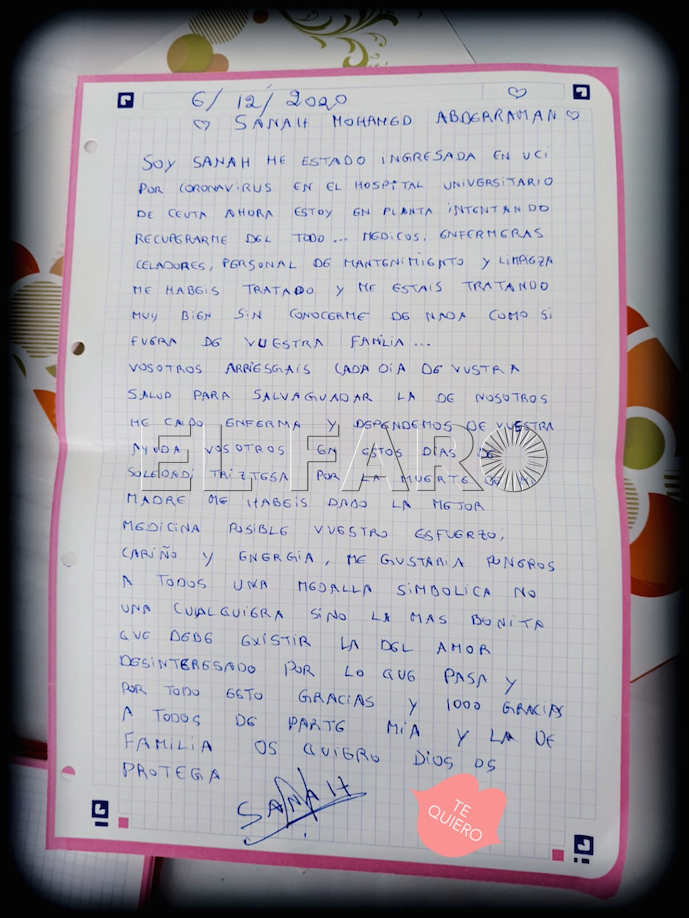 6/12/2020
♡ SANAH MOHAMED ABDERRAMAN ♡
SOY SANAH HE ESTADO INGRESADA EN UCI
POR CORONAVIRUS EN EL HOSPITAL UNIVERSITARIO
DE CEUTA AHORA ESTOY EN PLANTA INTENTANDO
RECUPERARME DEL TODO... MEDICOS, ENFERMERAS
CELADORES, PERSONAL DE MANTENIMIENTO Y LIMPIEZA
ME HABEIS TRATADO Y ME ESTAIS TRATANDO
MUY BIEN SIN CONOCERME DE NADA COMO SI
FUERA DE VUESTRA FAMILIA...
VOSOTROS ARRIESGAIS CADA DIA DE VUSTRA
SALUD PARA SALVAGUADAR LA DE NOSOTROS
HE CAIDO ENFERMA Y DEPENDEMOS DE VUESTRA
AYUDA VOSOTROS EN ESTOS DIAS DE
SOLEDAD TRIZTESA POR LA MUERTE DE MI
MADRE ME HABEIS DADO LA MEJOR
MEDICINA POSIBLE VUESTRO ESFUERZO,
CARIÑO Y ENERGIA, ME GUSTARIA PONEROS
A TODOS UNA MEDALLA SIMBOLICA NO
UNA CUALQUIERA SINO LA MAS BONITA
QUE DEBE EXISTIR LA DEL AMOR
DESINTERESADO POR LO QUE PASA Y
POR TODO ESTO GRACIAS Y 1000 GRACIAS
A TODOS DE PARTE MIA Y LA DE
FAMILIA OS QUIERO DIOS OS
PROTEGA
SANAH
TE
QUIERO
EL FARO